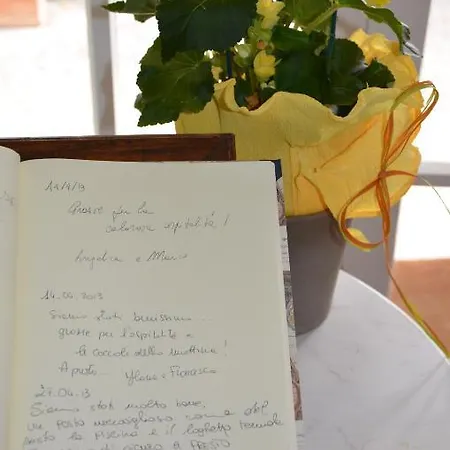 14/4/19
Grazie per la
calorosa ospitalità !
Angelica e Marco
14.04.2019
Siamo stati benissimo....
grazie per l'ospitalità e
le coccole della mattina !
A presto...
Ylenia e Francesco
27.04.19
Siamo stati molto bene,
un posto meraviglioso
la piscina e il laghetto termale
A PRESTO